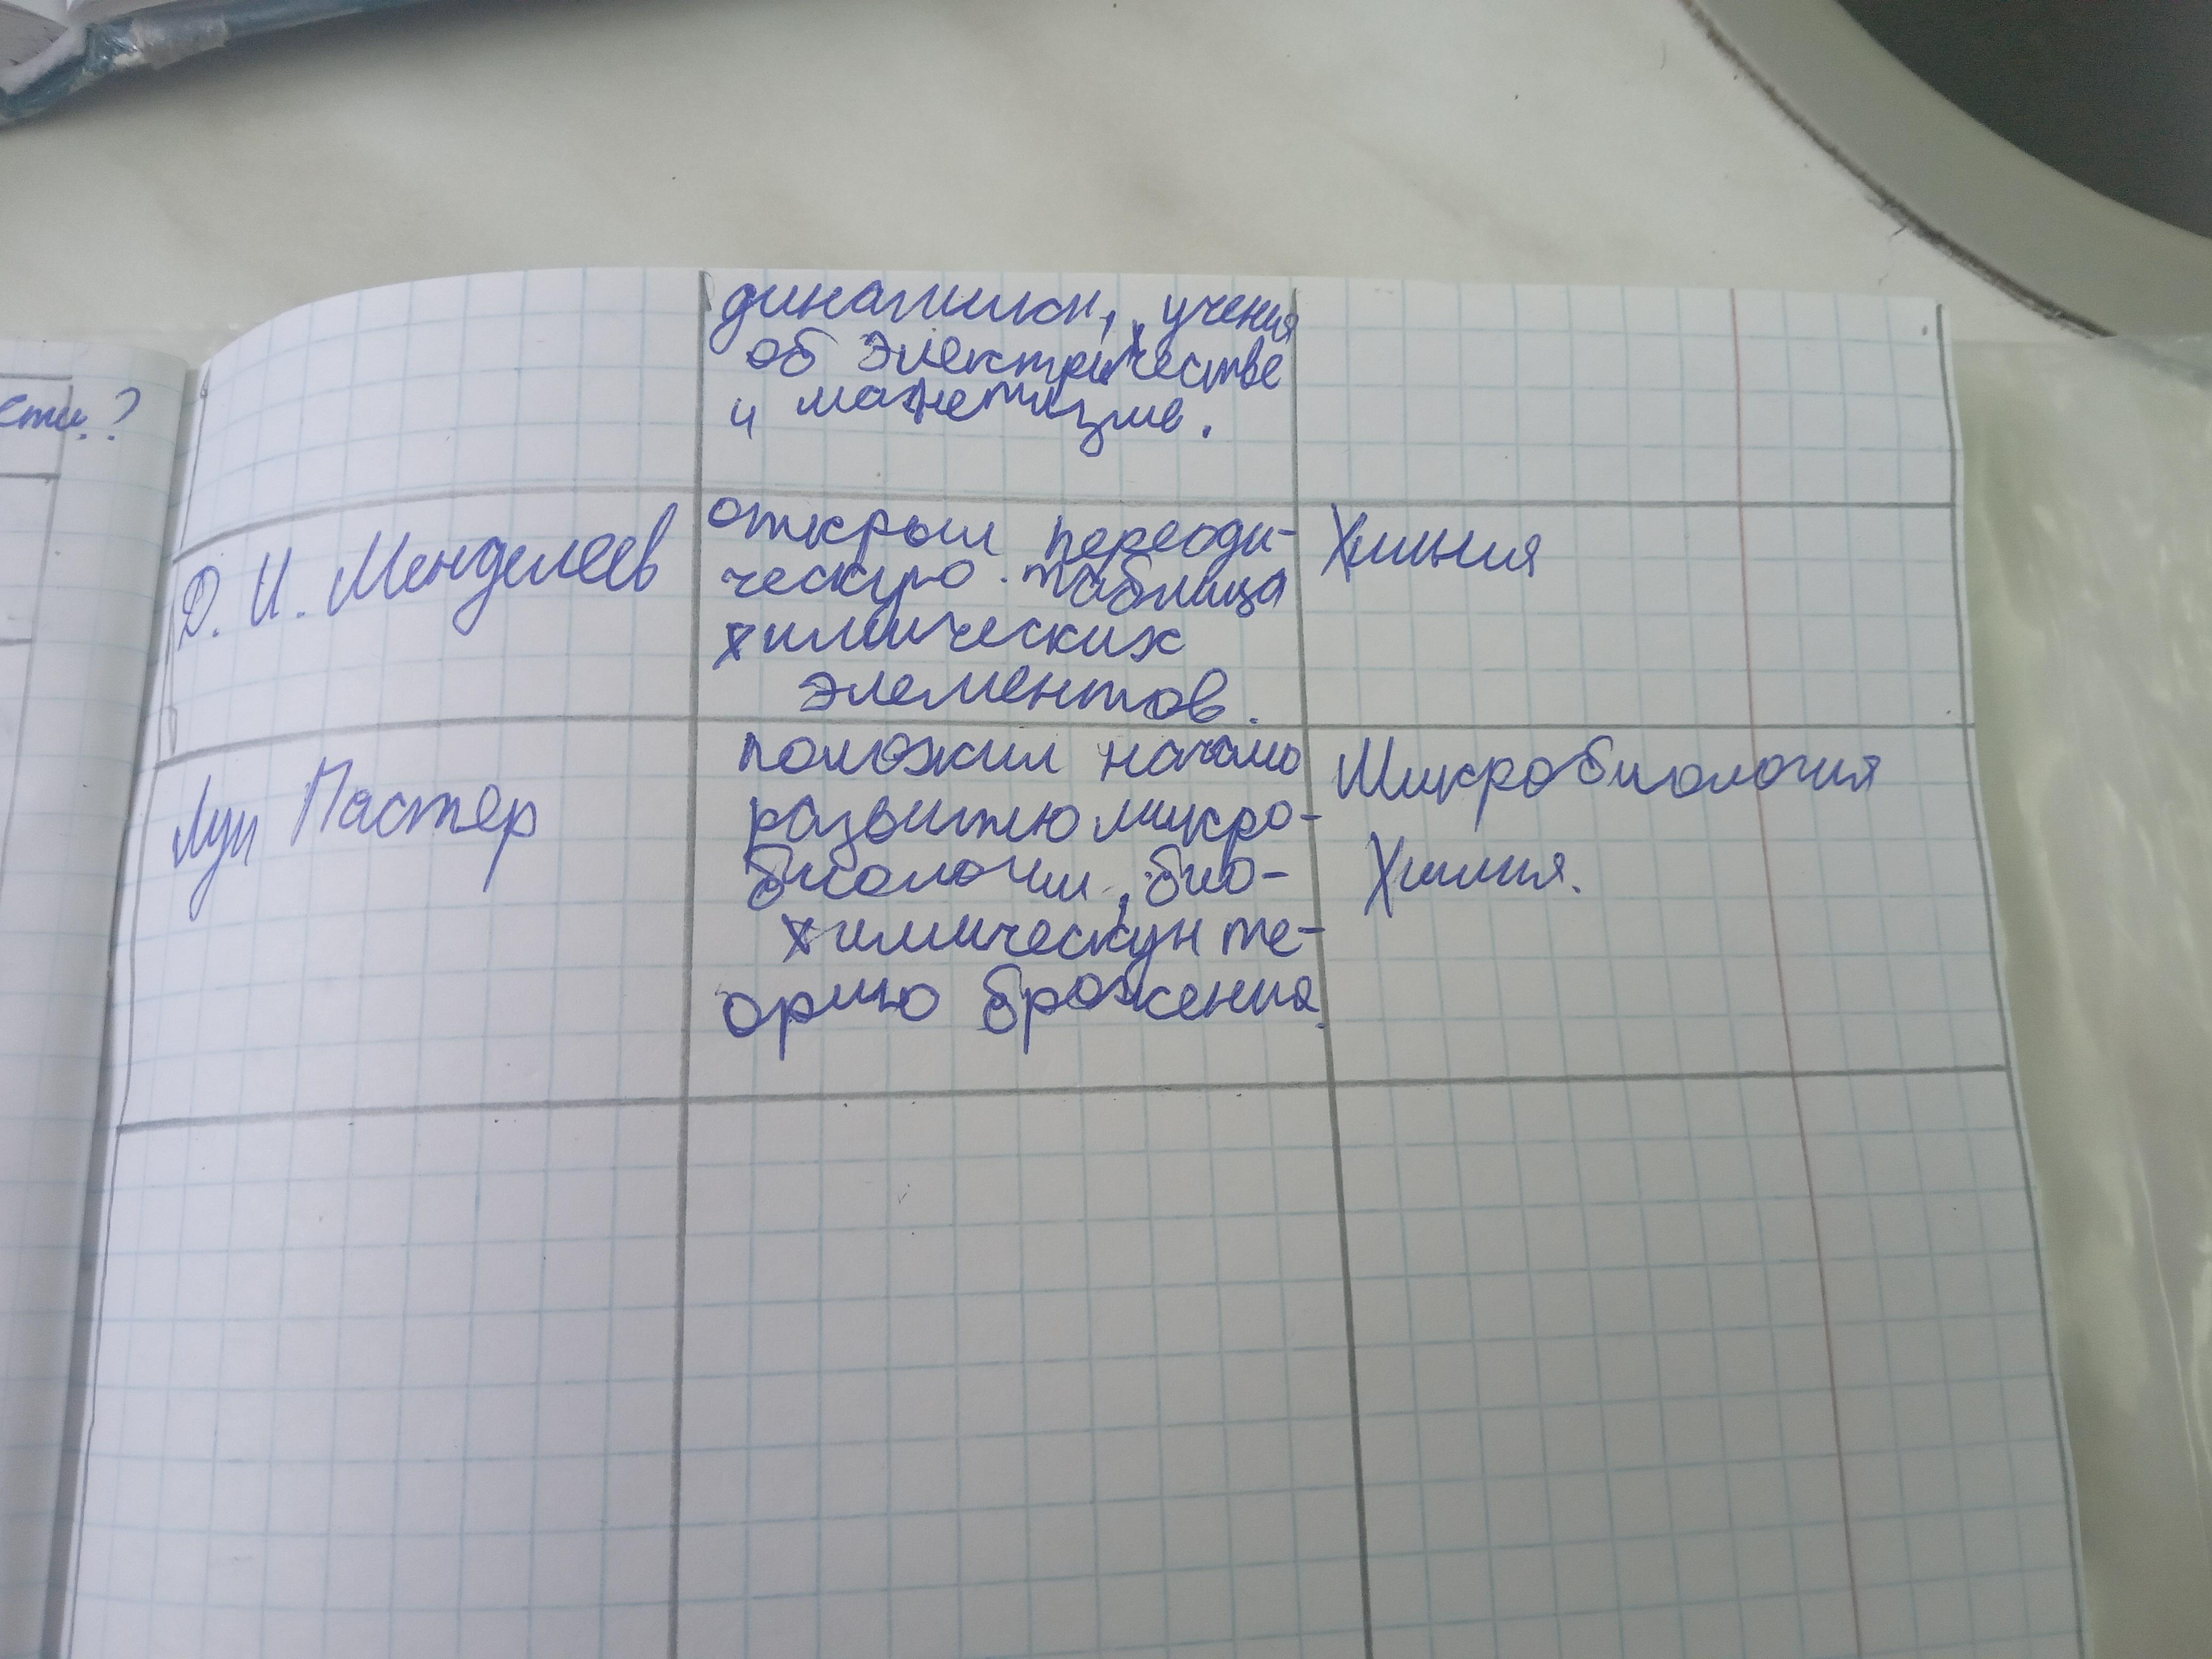 динамики, учения
об электричестве
и магнетизме.
сти.?
Д. И. Менделеев
открыл переоди-
ческую таблица
химических
элементов.
Химия
Луи Пастер
положил начало
развитию микро-
биологии, био-
химическун те-
орию брожения.
Микробиология
Химия.